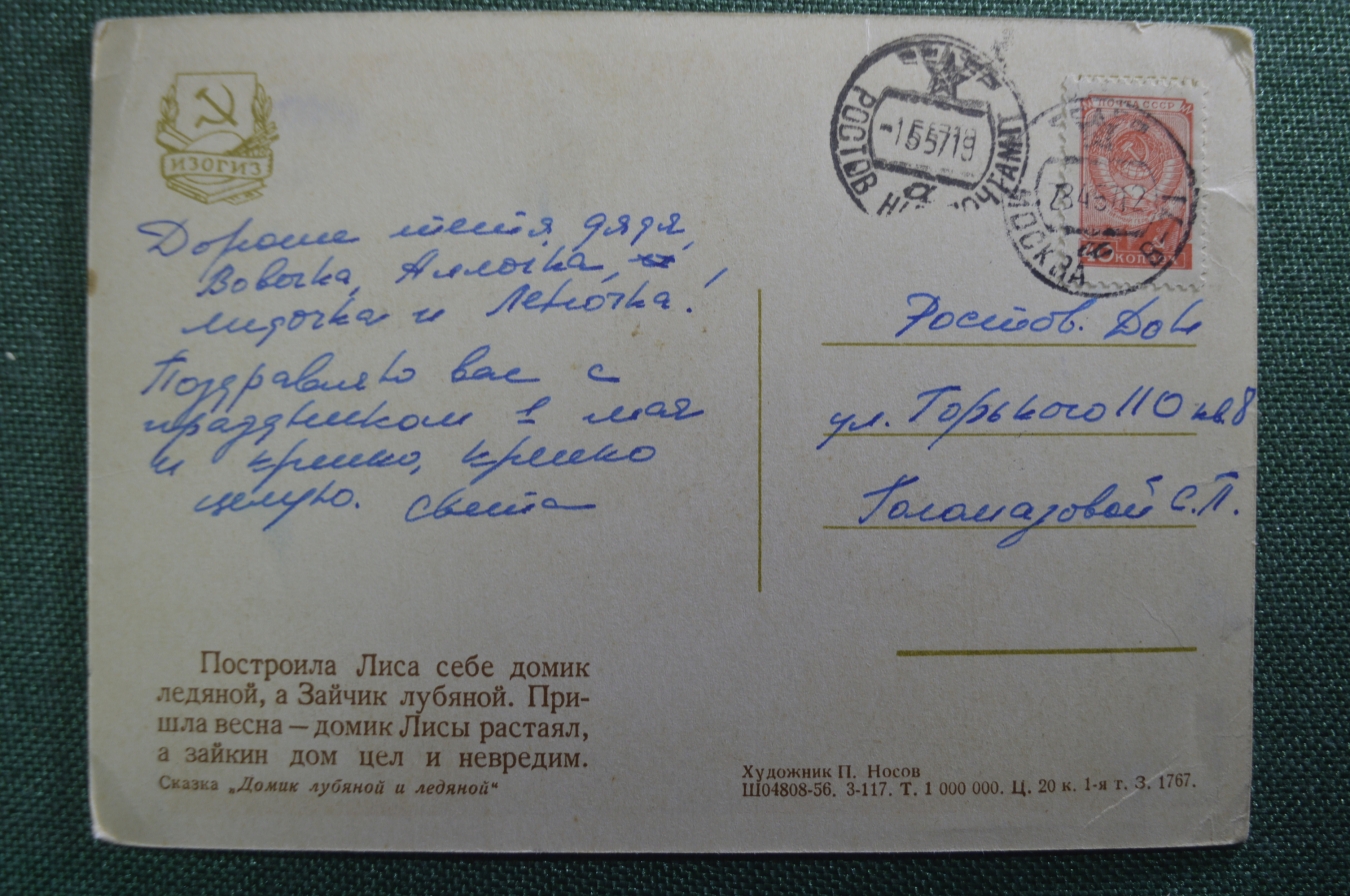 ИЗОГИЗ
Дорогие тетя, дядя,
Вовочка, Аллочка,
Лидочка и Леночка!
Поздравляю вас с
праздником 1 мая
и крепко, крепко
целую. Света
Построила Лиса себе домик
ледяной, а Зайчик лубяной. При-
шла весна — домик Лисы растаял,
а зайкин дом цел и невредим.
Сказка „Домик лубяной и ледяной“
РОСТОВ ПОЧТАМТ
ПОЧТА СССР
МОСКВА
Ростов. Дон
ул. Горького 110 кв. 8
Голомазовой С. П.
Художник П. Носов
Ш04808-56. З-117. Т. 1 000 000. Ц. 20 к. 1-я т. З. 1767.